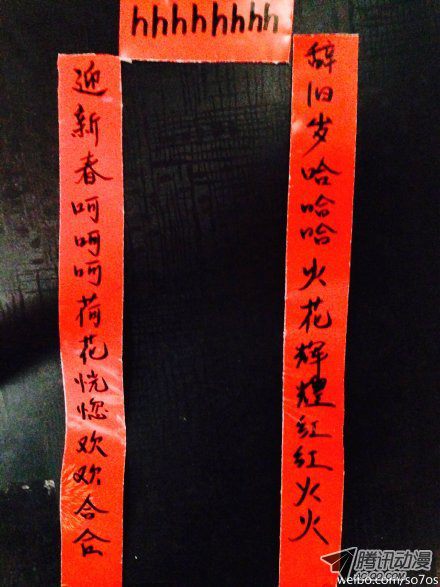 hhhhhhhh
辞旧岁哈哈哈火花辉煌红红火火
迎新春呵呵呵荷花恍惚欢欢合合
腾讯动漫
AC.QQ.COM
weibo.com/so7os